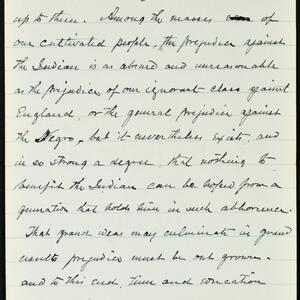 up to them. Among the masses of
our cultivated people, the prejudice against
the Indian is as absurd and unreasonable
as the prejudice of our ignorant class against
England, or the general prejudice against
the Negro, but it nevertheless exists, and
in so strong a degree, that nothing to
benefit the Indian can be hoped from a
generation that holds him in such abhorrence.
That grand ideas may culminate in grand
results prejudice must be out grown -
and to this end, time and education